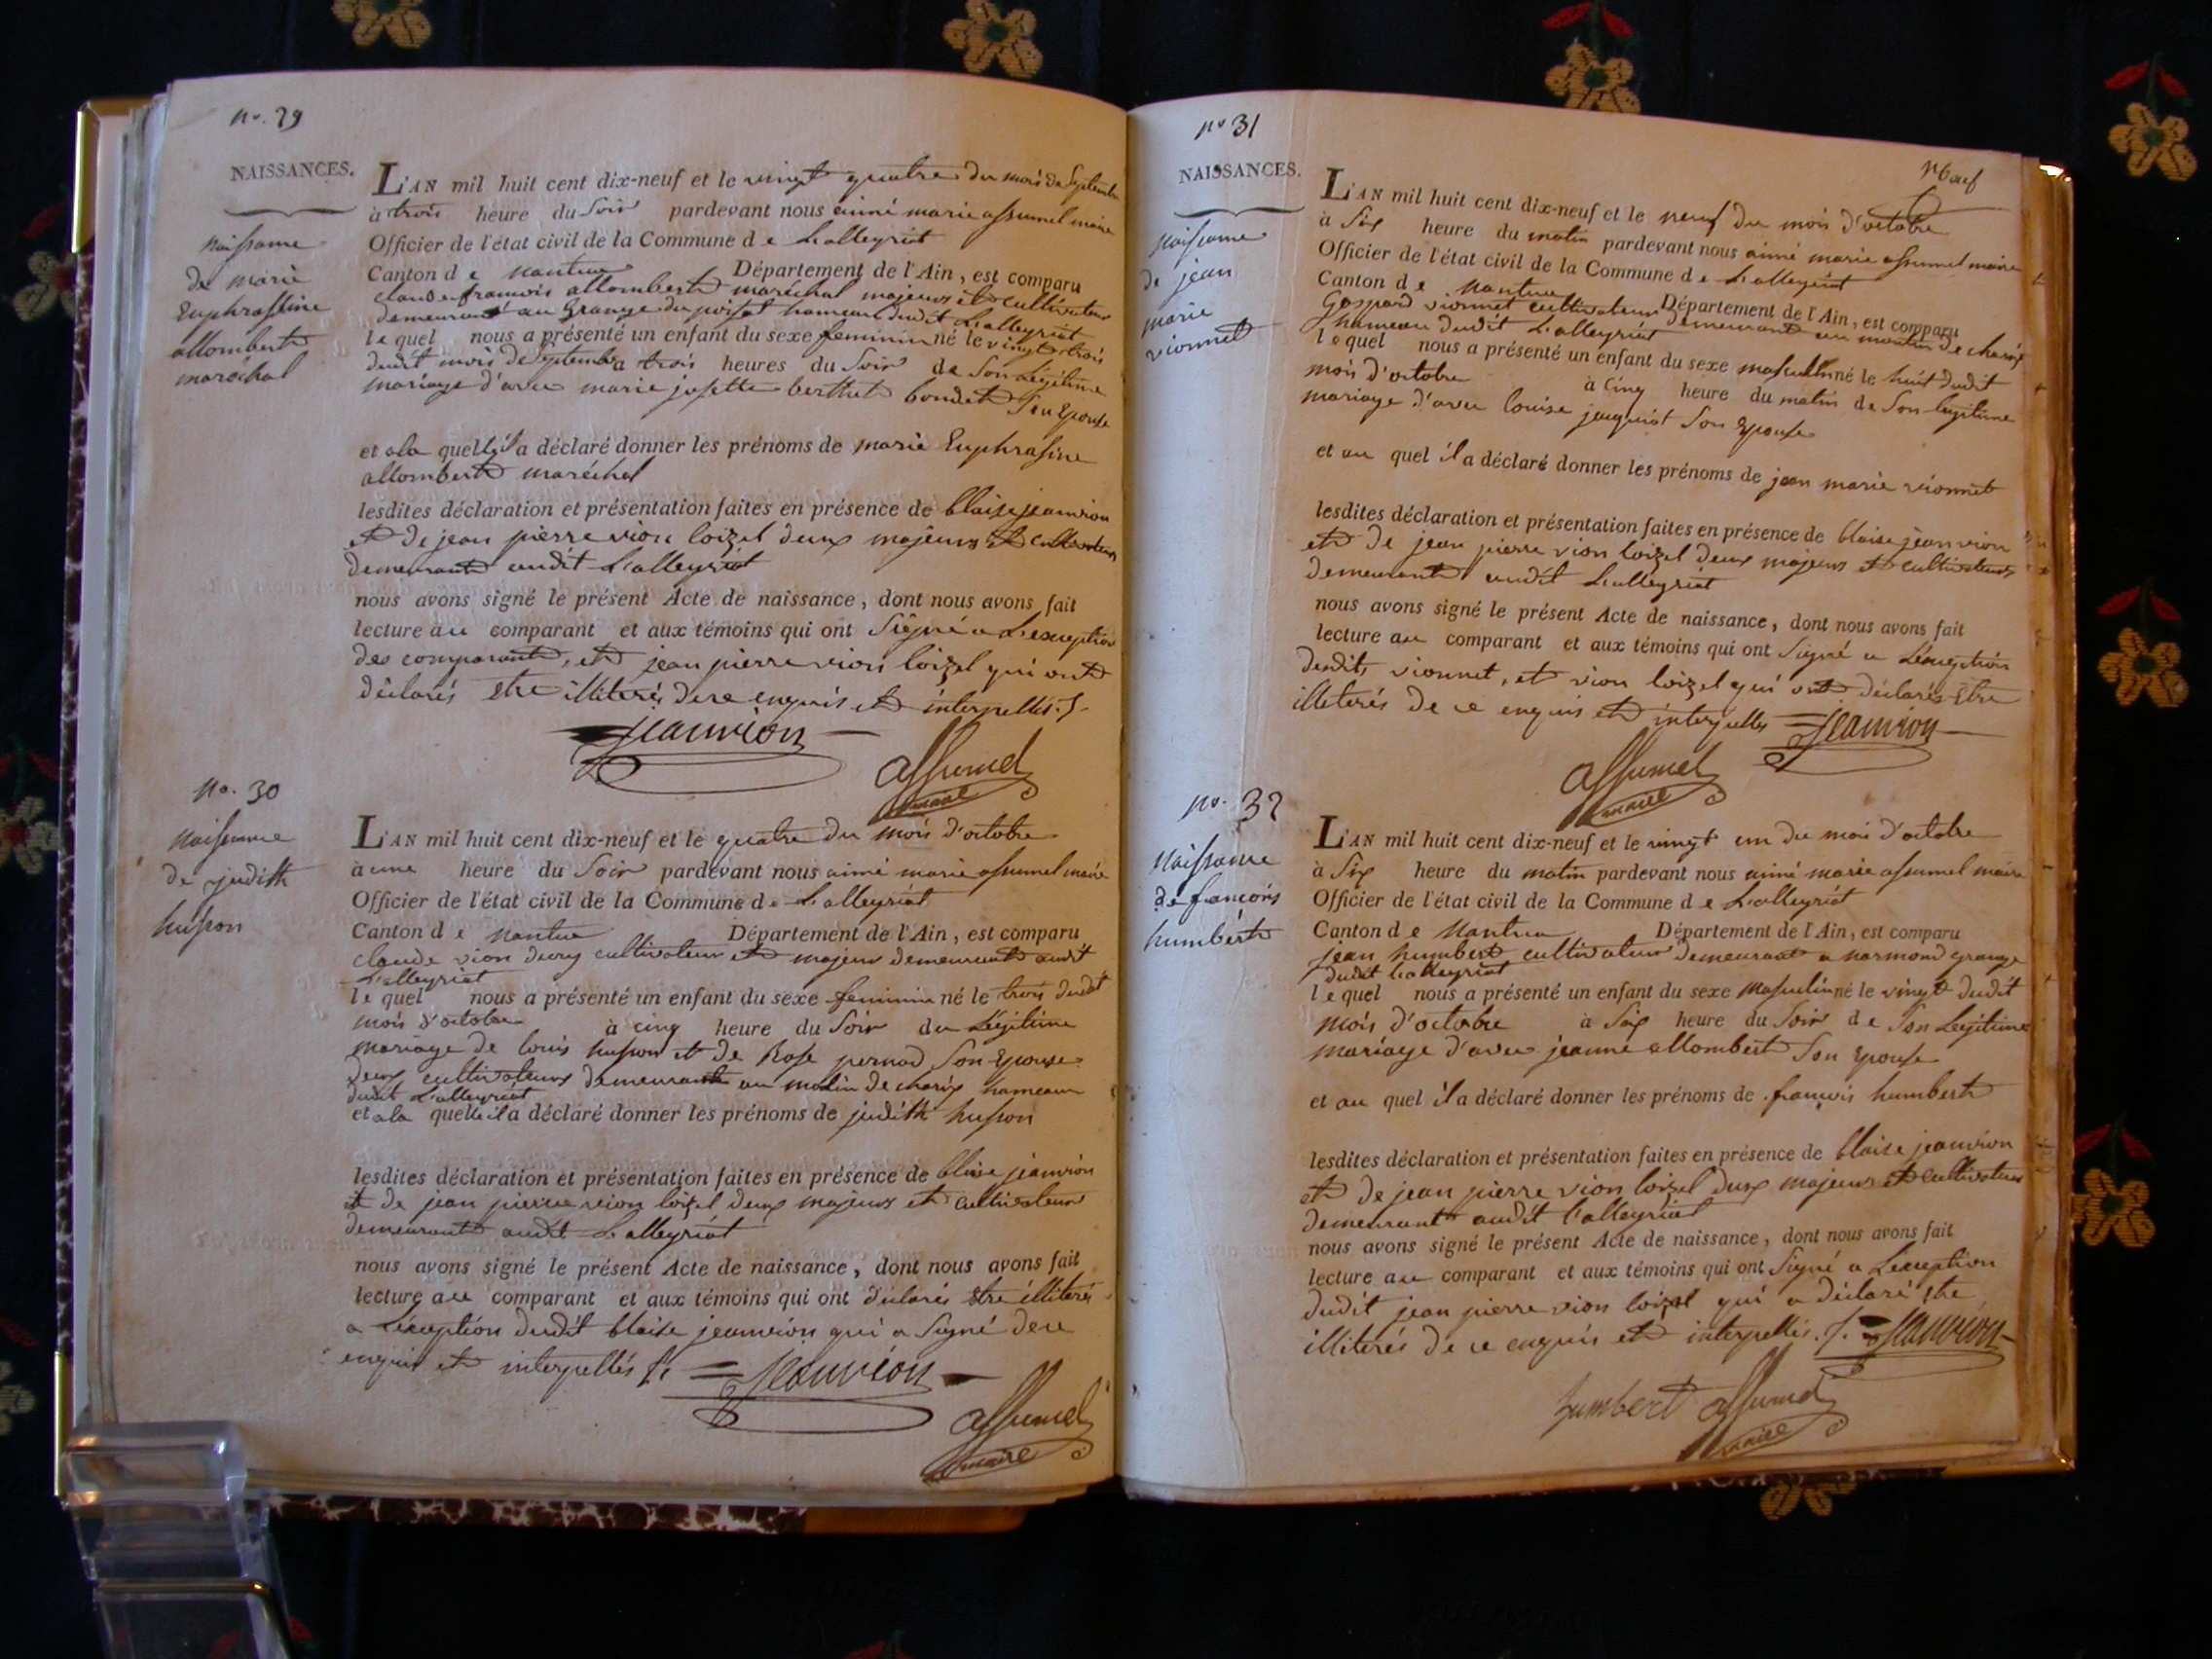 no. 29
NAISSANCES.
naissance
de marie
Euphrasine
allombert
maréchal
L'AN mil huit cent dix-neuf et le vingt quatre du mois de Septembre
à trois heure du Soir pardevant nous aimé marie assumel maire
Officier de l'état civil de la Commune de Lalleyriat
Canton de nantua Département de l'Ain, est comparu
claude françois allombert maréchal majeur et cultivateur
demeurant au Grange du poisat hameau dudit Lalleyriat
lequel nous a présenté un enfant du sexe feminin né le vingt trois
dudit mois de Septembre a trois heures du Soir de Son Légitime
mariage d'avec marie josette berthet bondet Son Epouse
et a la quelle il a déclaré donner les prénoms de marie Euphrasine
allombert maréchal
lesdites déclaration et présentation faites en présence de blaise jeanvion
et de jean pierre vion loizel deux majeurs et cultivateurs
demeurant audit Lalleyriat
nous avons signé le présent Acte de naissance, dont nous avons fait
lecture au comparant et aux témoins qui ont Signé a L'exception
des comparant, et jean pierre vion loizel qui ont
déclarés être illiterés de ce enquis et interpellés ./.
Jeanvion
assumel
maire
no. 30
naissance
de judith
husson
L'AN mil huit cent dix-neuf et le quatre du mois d'octobre
à une heure du Soir pardevant nous aimé marie assumel maire
Officier de l'état civil de la Commune de Lalleyriat
Canton de nantua Département de l'Ain, est comparu
claude vion ducry cultivateur et majeur demeurant audit
Lalleyriat
lequel nous a présenté un enfant du sexe feminin né le trois dudit
mois d'octobre à cinq heure du Soir du Légitime
mariage de louis husson et de Rose pernod Son Epouse
deux cultivateurs demeurants au moulin de charix hameau
dudit Lalleyriat
et a la quelle il a déclaré donner les prénoms de judith husson
lesdites déclaration et présentation faites en présence de blaise jeanvion
et de jean pierre vion loizel deux majeurs et cultivateurs
demeurant audit Lalleyriat
nous avons signé le présent Acte de naissance, dont nous avons fait
lecture au comparant et aux témoins qui ont déclarés être illiterés
a L'éxception dudit blaise jeanvion qui a Signé de ce
enquis et interpellés ./.
Jeanvion
assumel
maire
no 31
neuf
NAISSANCES.
naissance
de jean
marie
vionnet
L'AN mil huit cent dix-neuf et le neuf du mois d'octobre
à Six heure du matin pardevant nous aimé marie assumel maire
Officier de l'état civil de la Commune de Lalleyriat
Canton de nantua Département de l'Ain, est comparu
Gaspard vionnet cultivateur demeurant au moulin de charix
hameau dudit Lalleyriat
lequel nous a présenté un enfant du sexe masculin né le huit dudit
mois d'octobre à cinq heure du matin de Son légitime
mariage d'avec louise jouguiat Son Epouse
et au quel il a déclaré donner les prénoms de jean marie vionnet
lesdites déclaration et présentation faites en présence de blaise jeanvion
et de jean pierre vion loizel deux majeurs et cultivateurs
demeurant audit Lalleyriat
nous avons signé le présent Acte de naissance, dont nous avons fait
lecture au comparant et aux témoins qui ont Signé a L'éxception
desdits vionnet, et vion loizel qui ont déclarés être
illiterés de ce enquis et interpellés
Jeanvion
assumel
maire
no. 32
naissance
de françois
humbert
L'AN mil huit cent dix-neuf et le vingt un du mois d'octobre
à Six heure du matin pardevant nous aimé marie assumel maire
Officier de l'état civil de la Commune de Lalleyriat
Canton de Nantua Département de l'Ain, est comparu
jean humbert cultivateur demeurant a narmond grange
dudit Lalleyriat
lequel nous a présenté un enfant du sexe masculin né le vingt dudit
mois d'octobre à Six heure du Soir de Son Légitime
mariage d'avec jeanne allombert Son Epouse
et au quel il a déclaré donner les prénoms de françois humbert
lesdites déclaration et présentation faites en présence de blaise jeanvion
et de jean pierre vion loizel deux majeurs et cultivateurs
demeurant audit Lalleyriat
nous avons signé le présent Acte de naissance, dont nous avons fait
lecture au comparant et aux témoins qui ont Signé a L'exception
dudit jean pierre vion loizel qui a déclaré être
illiterés de ce enquis et interpellés ./. Jeanvion
humbert assumel
maire